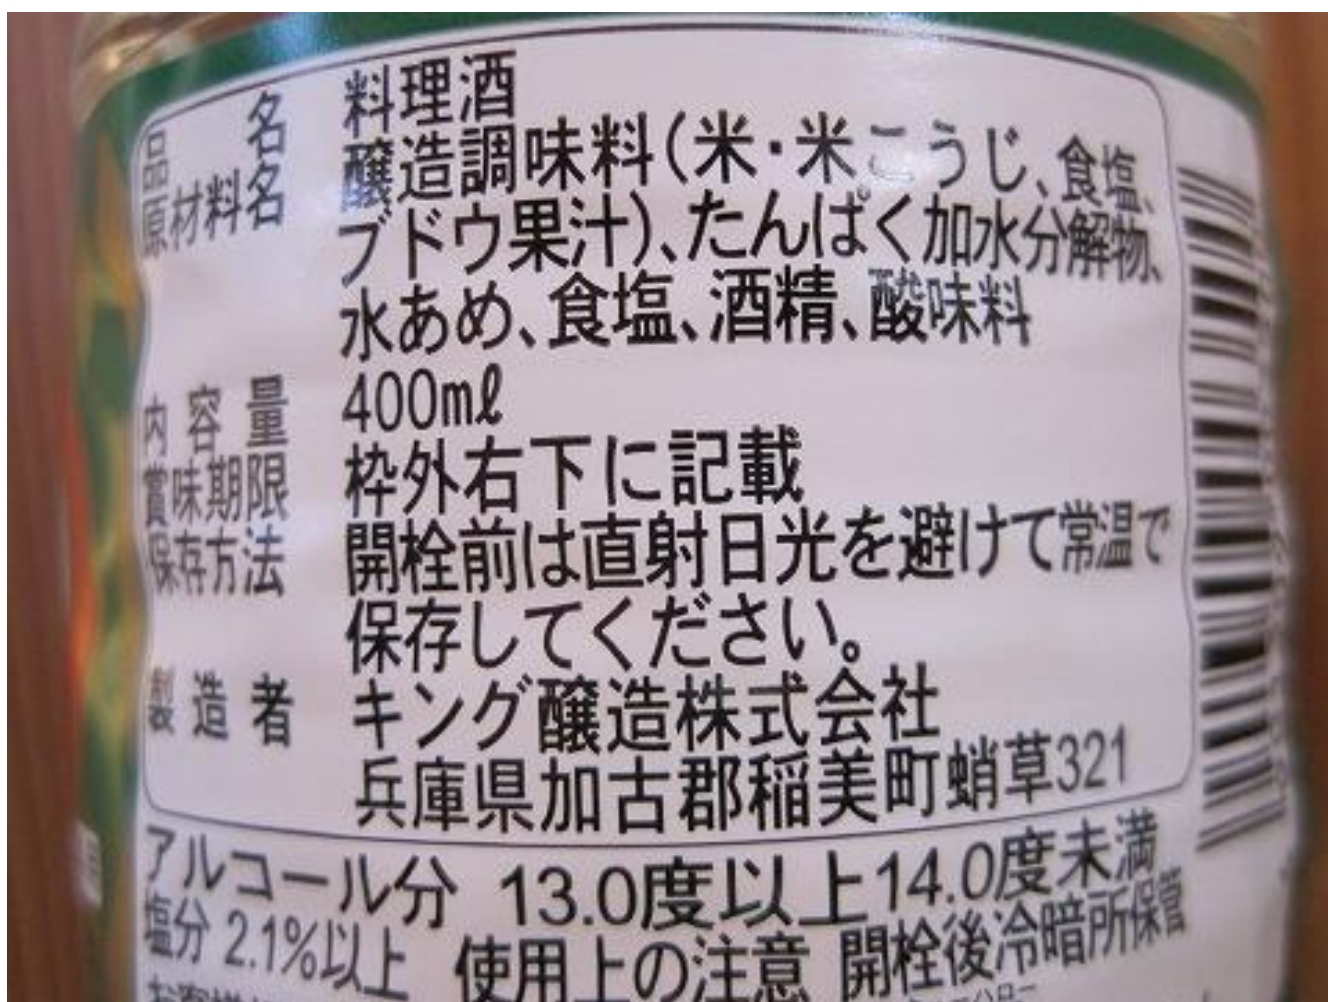 品名 料理酒
原材料名 醸造調味料(米・米こうじ、食塩、
ブドウ果汁)、たんぱく加水分解物、
水あめ、食塩、酒精、酸味料
内容量 400mℓ
賞味期限 枠外右下に記載
保存方法 開栓前は直射日光を避けて常温で
保存してください。
製造者 キング醸造株式会社
兵庫県加古郡稲美町蛸草321
アルコール分 13.0度以上14.0度未満
塩分 2.1%以上 使用上の注意 開栓後冷暗所保管